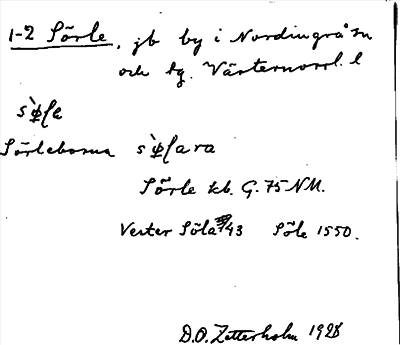 1-2 Sörle, jb by i Nordingrå sn
och tg. Västernorrl. l
sø̀ɭe
Sörleborna sø̀ɭara
Sörle kb. G. 75 NM.
Vester Söla 43 Söle 1550.
D.O. Zetterholm 1928